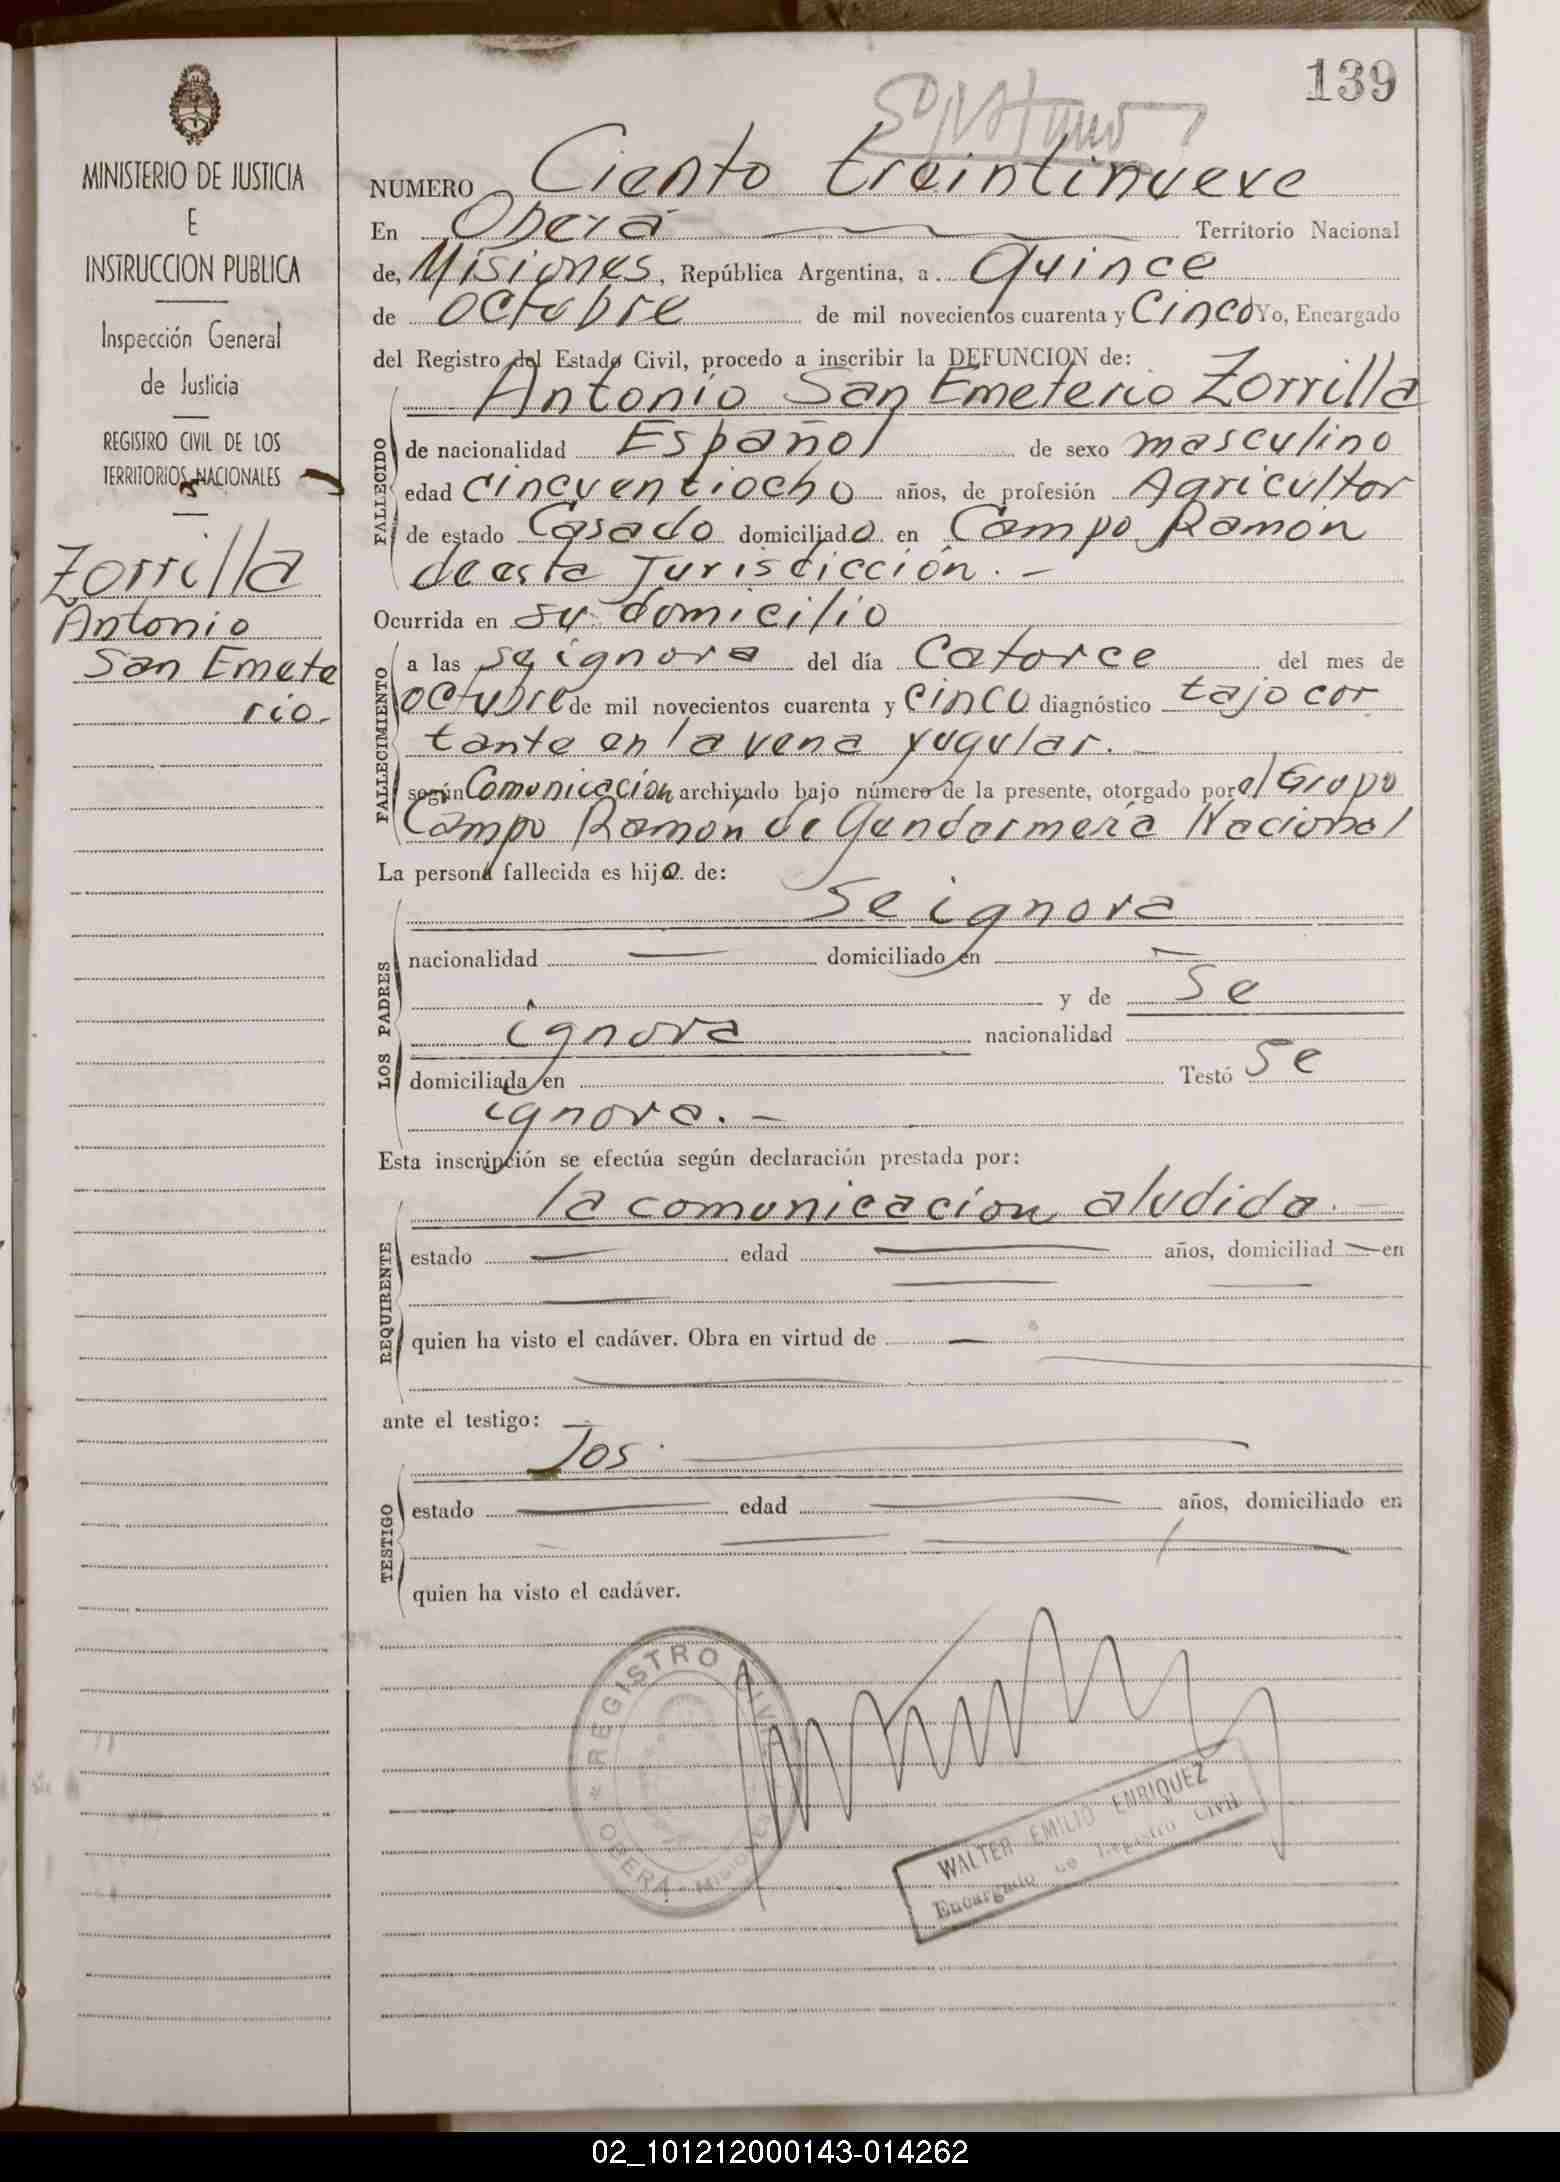 139
MINISTERIO DE JUSTICIA
E
INSTRUCCION PUBLICA
Inspección General
de Justicia
REGISTRO CIVIL DE LOS
TERRITORIOS NACIONALES
Zorrilla
Antonio
San Emete
rio.
NUMERO Ciento treintinueve
En Oberá Territorio Nacional
de, Misiones, República Argentina, a Quince
de octubre de mil novecientos cuarenta y Cinco Yo, Encargado
del Registro del Estado Civil, procedo a inscribir la DEFUNCION de:
Antonio San Emeterio Zorrilla
FALLECIDO
de nacionalidad Español de sexo masculino
edad cincuentiocho años, de profesión Agricultor
de estado Casado domiciliado en Campo Ramón
de esta Jurisdicción. -
Ocurrida en su domicilio
FALLECIMIENTO
a las se ignora del día Catorce del mes de
octubre de mil novecientos cuarenta y cinco diagnóstico tajo cor
tante en la vena yugular.
según Comunicación archivado bajo número de la presente, otorgado por el Grupo
Campo Ramón de Gendarmería Nacional
La persona fallecida es hijo de:
LOS PADRES
Se ignora
nacionalidad — domiciliado en —
y de Se
ignora nacionalidad
domiciliada en Testó Se
ignora. -
Esta inscripción se efectúa según declaración prestada por:
REQUIRENTE
la comunicación aludida. -
estado — edad — años, domiciliad — en
quien ha visto el cadáver. Obra en virtud de —
ante el testigo:
TESTIGO
Jos.
estado — edad — años, domiciliado en
quien ha visto el cadáver.
REGISTRO CIVIL
OBERÁ - MISIONES
WALTER EMILIO ENRIQUEZ
Encargado de Registro Civil
02_101212000143-014262